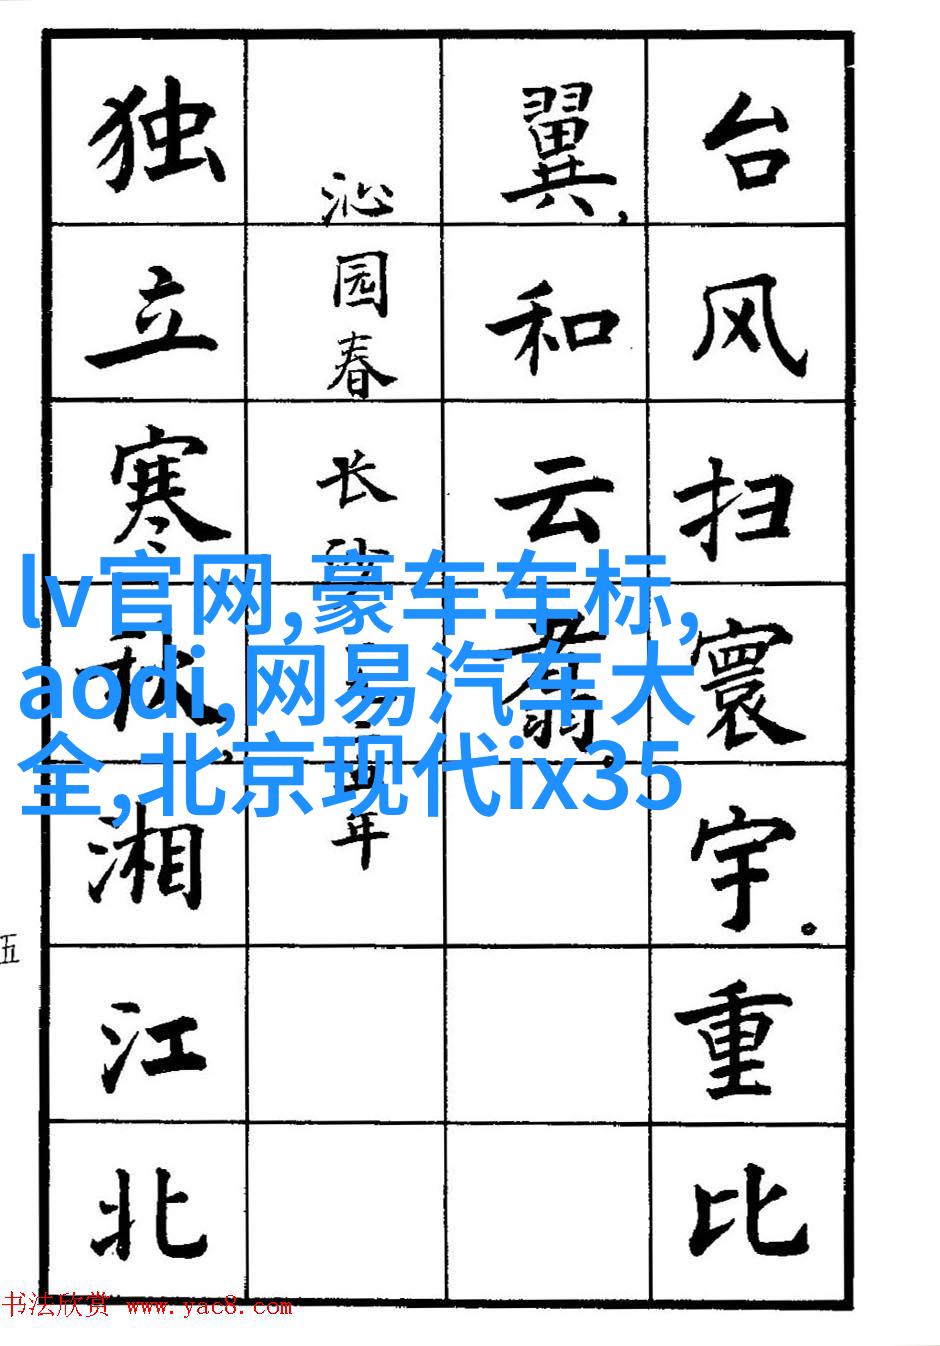 台风扫寰宇。重比
翼，和云翥。
沁园春
长沙
年
独立寒秋，湘江北
五
lv官网,豪车车标,
aodi,网易汽车大
全,北京现代ix35
书法欣赏 www.yac8.com